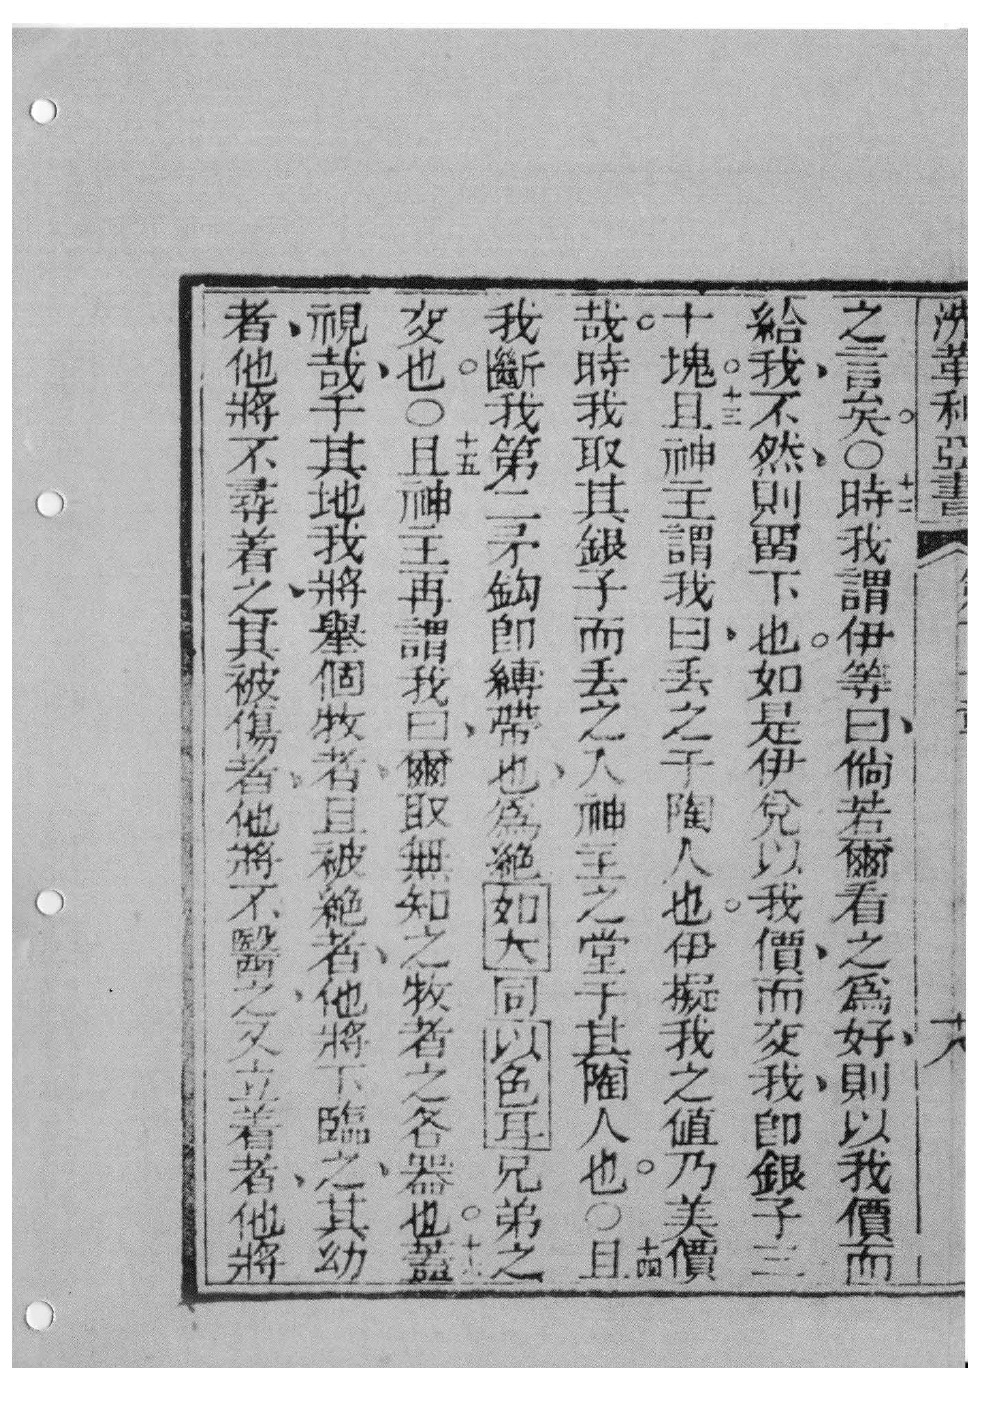 洗革利亞書 十八
之言矣。○十二時我謂伊等曰、倘若爾看之爲好、則以我價而
給我、不然、則留下也。如是伊兌以我價、而交我、卽銀子三
十塊。十三且神主謂我曰、丟之于陶人也。伊擬我之值乃美價
哉。時我取其銀子而丟之入神主之堂于其陶人也。○十四且
我斷我第二矛鈎卽縛帶也、爲絕如大同以色耳兄弟之
交也。○十五且神主再謂我曰、爾取無知之牧者之各器也。十六蓋
視哉、于其地我將舉個牧者、且被絕者、他將不臨之、其幼
者、他將不尋着之、其被傷者、他將不醫之、又立着者、他將